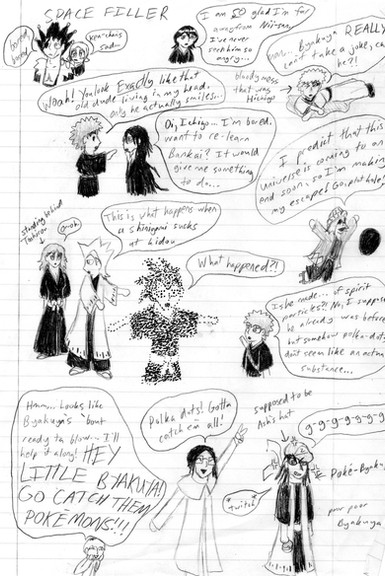 SPACE FILLER
bored
bored
Ken-chan's
sad...
I am SO glad I'm far
away from Nii-sama
I've never
seen him so
angry...
man... Byakuya REALLY
can't take a joke, can
he?!
bloody mess
that was
Hisagi
Woah! You look Exactly like that
old dude living in my head,
only he actually smiles...
Oi, Ichigo... I'm bored,
want to re-learn
Bankai? It would
give me something
to do...
I predict that this
universe is coming to an
end soon, so I'm making
my escape! Go, plot hole!
standing behind
Toshiro
Oooh
This is what happens when
a shinigami sucks
at kidou
What happened?!
Is he made... of spirit
particles?! No, I suppose
he already was before
but somehow polka-dots
don't seem like an actual
substance...
Hmm... Looks like
Byakuya's bout
ready ta blow... I'll
help it along! HEY
LITTLE BYAKUYA!
GO CATCH THEM
POKÉMONS!!!
Polka dots! Gotta
catch em all!
supposed to be
Ash's hat
g-g-g-g-g-g
*twitch*
Poké-Byaku
poor poor
Byakuya